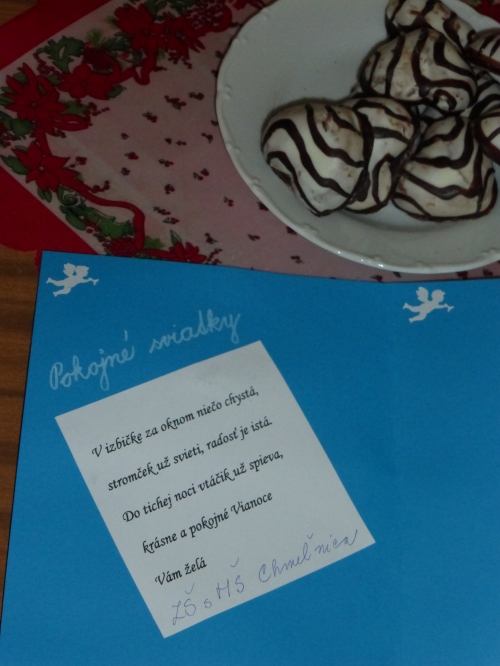 Pokojné sviatky
V izbičke za oknom niečo chystá,
stromček už svieti, radosť je istá.
Do tichej noci vtáčik už spieva,
krásne a pokojné Vianoce
Vám želá
ZŠ s MŠ Chmeľnica